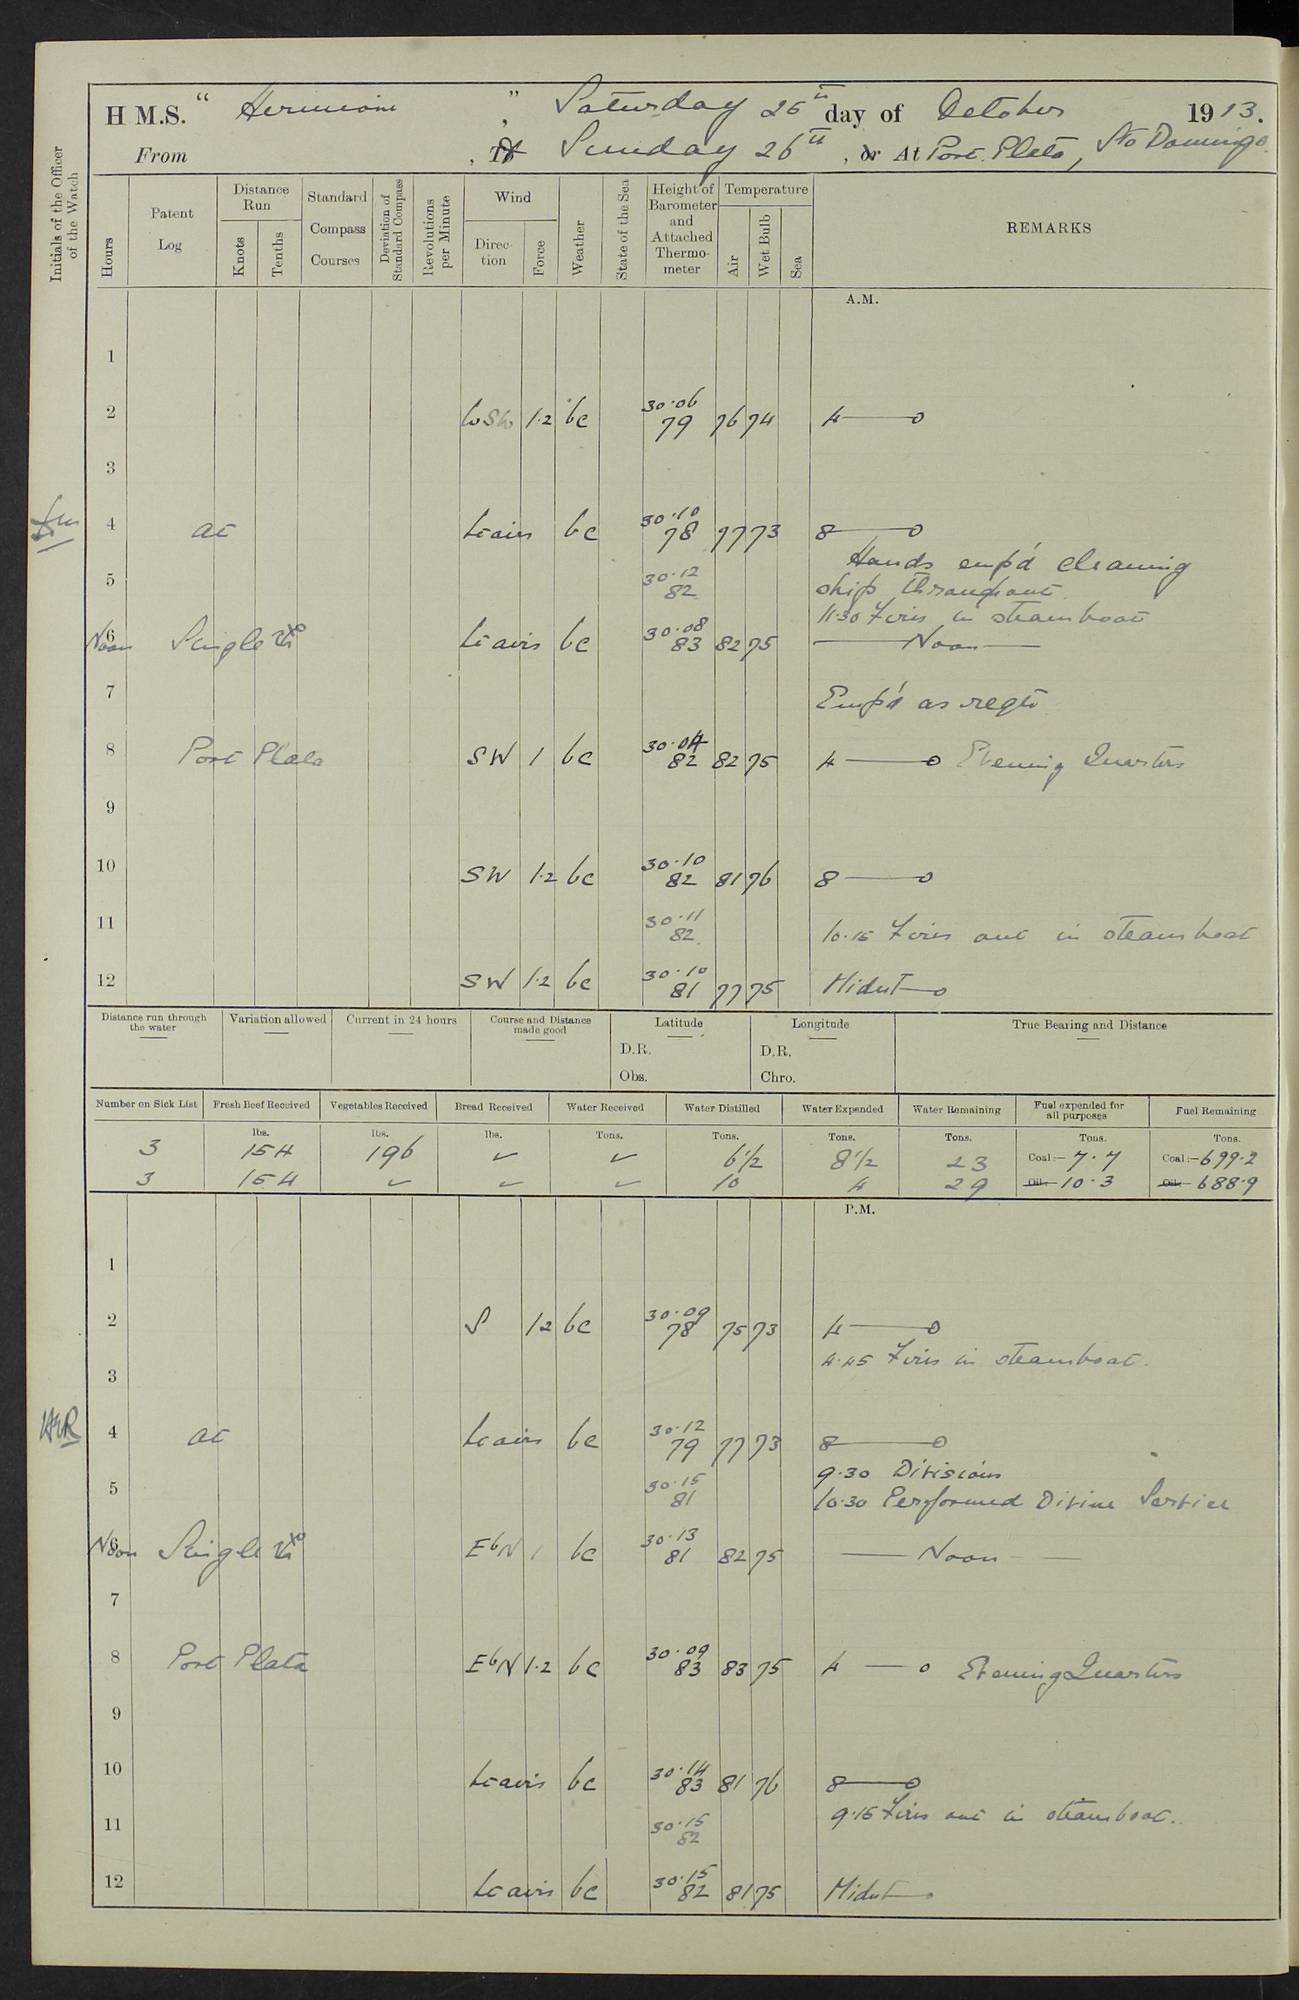 H M.S. " Hermione " , Saturday 25th day of October 1913.
From , To Sunday 26th , or At Port Plata, Sto Domingo.
Initials of the Officer of the Watch
Hours
Patent Log
Distance Run
Knots
Tenths
Standard Compass Courses
Deviation of Standard Compass
Revolutions per Minute
Wind
Direction
Force
Weather
State of the Sea
Height of Barometer and Attached Thermometer
Temperature
Air
Wet Bulb
Sea
REMARKS
A.M.
1
2 WSW 1·2 bc 30·06 79 76 74 4
3
4 at Lt airs bc 30·10 78 77 73 8
Hands emp'd cleaning
5 30·12 82 ship throughout
11·30 Fires in steamboat
6 Noon Single Lt airs bc 30·08 83 82 75 Noon
7 Emp'd as reqte
8 Port Plata SW 1 bc 30·04 82 82 75 4 Evening Quarters
9
10 SW 1·2 bc 30·10 82 81 76 8
11 30·11 82 10·15 Fires out in steamboat
12 SW 1·2 bc 30·10 81 77 75 Midnt
Distance run through the water
Variation allowed
Current in 24 hours
Course and Distance made good
Latitude
D.R.
Obs.
Longitude
D.R.
Chro.
True Bearing and Distance
Number on Sick List Fresh Beef Received Vegetables Received Bread Received Water Received Water Distilled Water Expended Water Remaining Fuel expended for all purposes Fuel Remaining
lbs. lbs. lbs. Tons. Tons. Tons. Tons. Tons. Tons.
3 154 196 ✓ ✓ 6½ 8½ 23 Coal:- 7·7 Coal:- 699·2
3 154 ✓ ✓ ✓ 10 4 29 Oil:- 10·3 Oil:- 688·9
P.M.
1
2 S 1·2 bc 30·09 78 75 73 4
4·45 Fires in steamboat.
3
4 at Lt airs bc 30·12 79 77 73 8
9·30 Divisions
5 30·15 81 10·30 Performed Divine Service
6 Noon Single EbN 1 bc 30·13 81 82 75 Noon
7
8 Port Plata EbN 1·2 bc 30·09 83 83 75 4 Evening Quarters
9
10 Lt airs bc 30·14 83 81 76 8
9·15 Fires out in steamboat.
11 30·15 82
12 Lt airs bc 30·15 82 81 75 Midnt